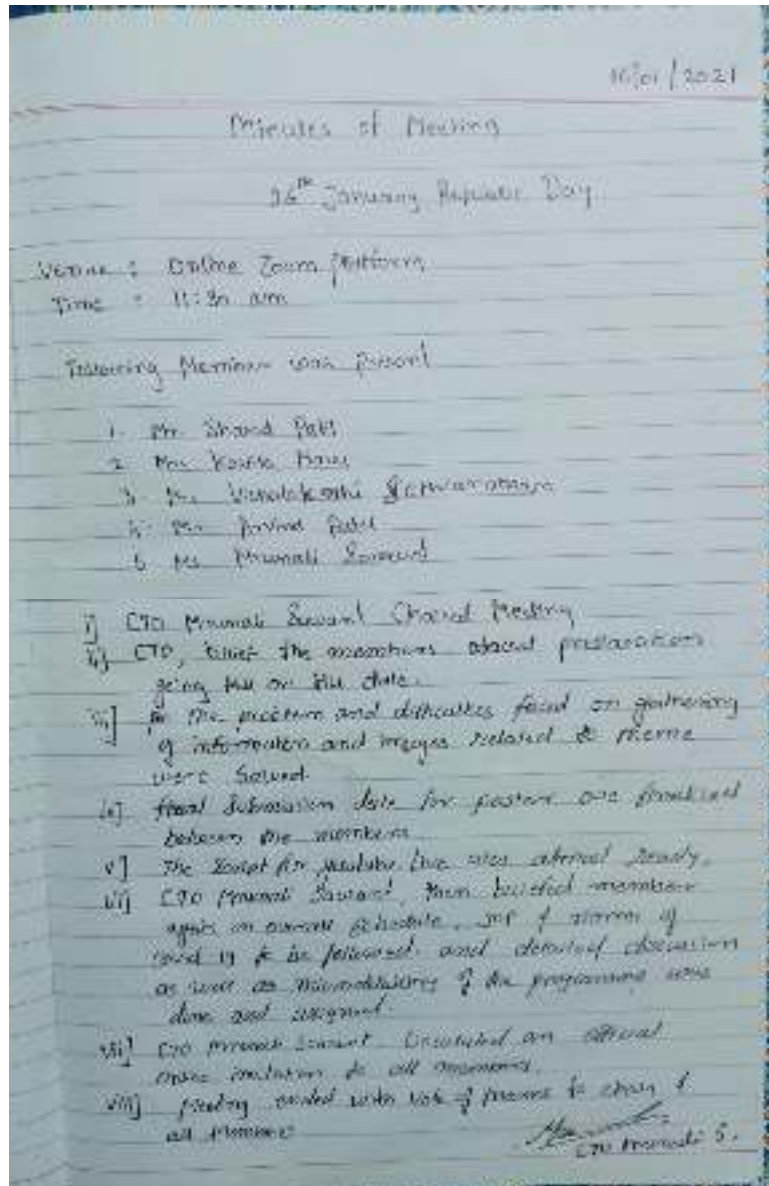 /01/2021
Minutes of Meeting
26th January Republic Day
Venue : Online Zoom Platform
Time : 11:30 am
Following Member was present
1. Mr. Sharad Patil
2. Mrs. Kavita
3. Ms. Vishalakshi
4. Mr. Arvind Patil
5. Ms. Mrunali Sawant
i] CTO Mrunali Sawant Chaired Meeting
ii] CTO, brief the members about preparation
going till date.
iii] the problem and difficulties faced on gathering
of information and images related to theme
were solved.
iv] final submission date for posters are finalized
between the members
v] The script for youtube live was almost ready.
vi] CTO Mrunali Sawant, then briefed member
again on overall schedule, SOP & norms of
covid 19 to be followed. and detailed discussion
as well as of the programme were
done and assigned.
vii] CTO Mrunali Sawant circulated an official
invitation to all members.
viii] Meeting ended with vote of thanks to chair &
all
CTO Mrunali S.